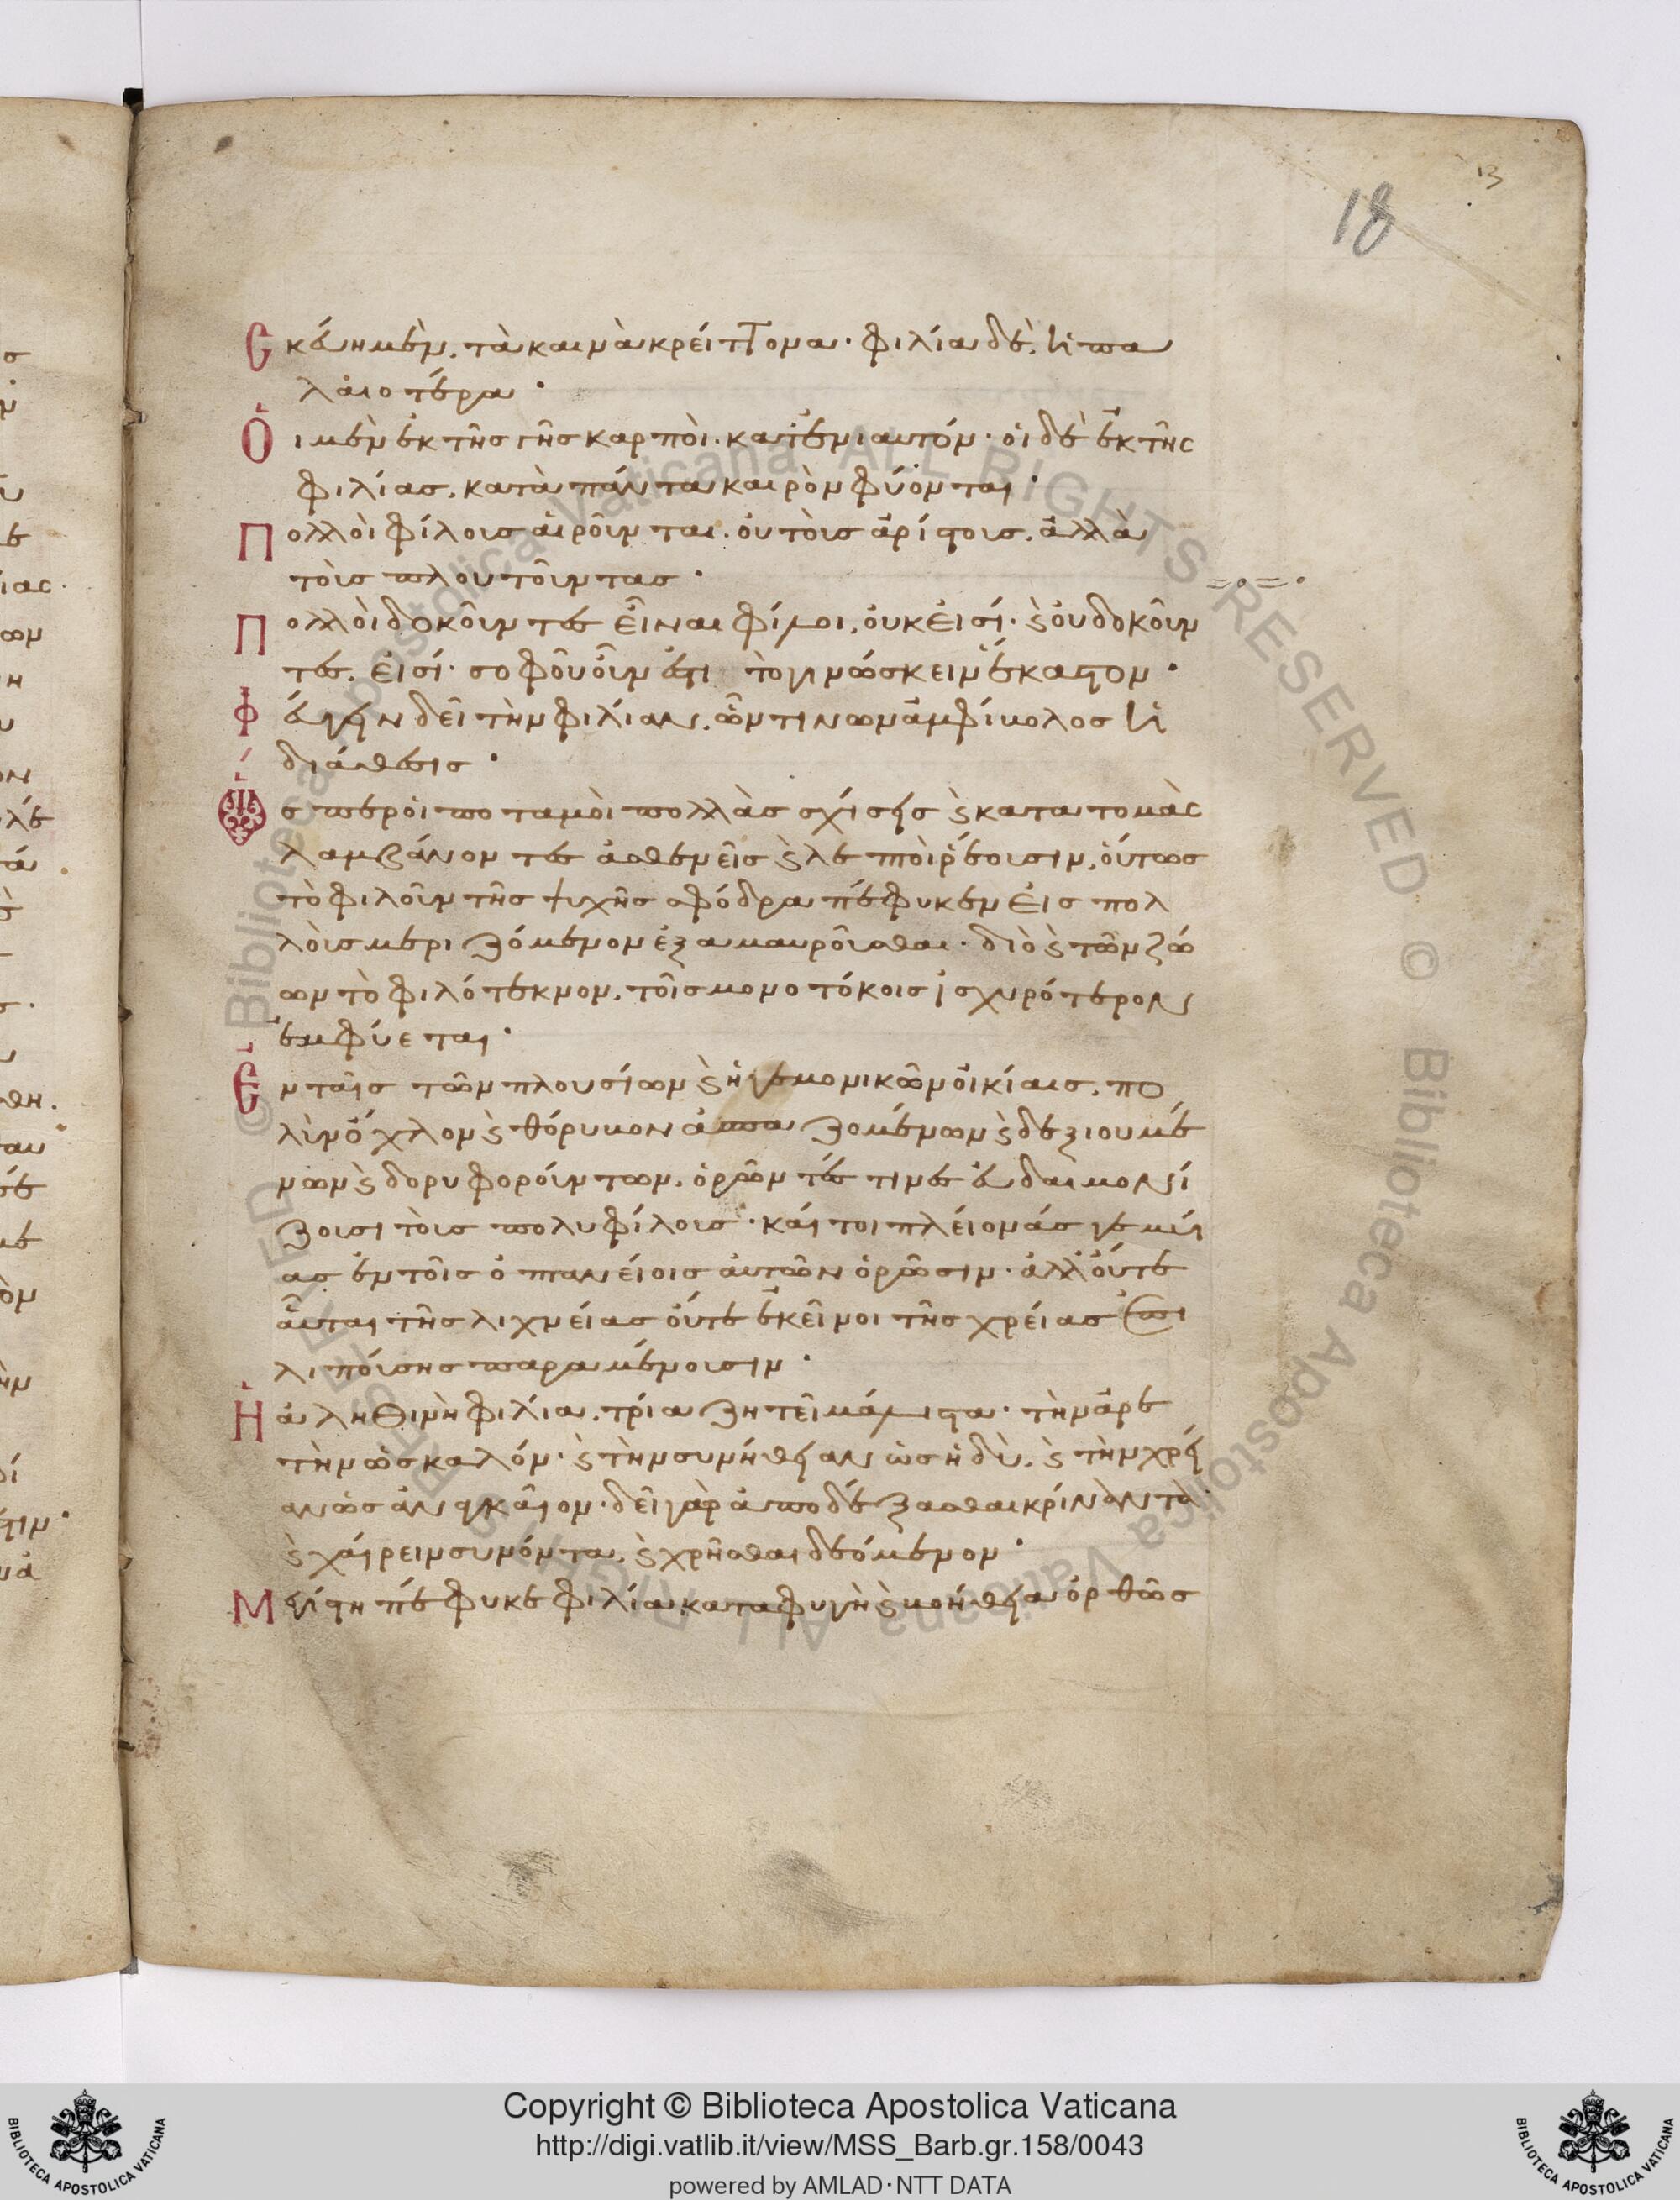 18
13
Σκεύη μὲν, τὰ καινὰ κρείττονα· φιλία δὲ, ἡ πα
λαιοτέρα·
Οἱ μὲν ἐκ τῆς γῆς καρποὶ. κατ' ἐνιαυτόν· οἱ δὲ ἐκ τῆς
φιλίας, κατὰ πάντα καιρὸν φύονται·
Πολλοὶ φίλους αἱροῦνται. οὐ τοὺς ἀρίστους, ἀλλὰ
τοὺς πλουτοῦντας·
Πολλοὶ δοκοῦντες εἶναι φίλοι, οὐκ εἰσί· ϛ οὐ δοκοῦν
τες, εἰσί· σοφοῦ οὖν ἐστι τὸ γινώσκειν ἕκαστον·
Φεύγειν δεῖ τὴν φιλίαν, ὧν τινων ἀμφίβολος ἡ
διάθεσις·
Ὥσπερ οἱ ποταμοὶ πολλὰς σχίσεις ϛ κατατομὰς
λαμβάνοντες ἀσθενεῖς ϛ λεπτοὶ ῥέουσιν, οὕτως
τὸ φιλοῦν τῆς ψυχῆς σφόδρα πέφυκεν εἰς πολ
λοὺς μεριζόμενον ἐξαμαυροῦσθαι· διὸ ϛ τῶν ζώ
ων τὸ φιλότεκνον, τοῖς μονοτόκοις ἰσχυρότερον
ἐμφύεται·
Ἐν ταῖς τῶν πλουσίων ϛ ἡγεμονικῶν οἰκίαις, πο
λὺν ὄχλον ϛ θόρυβον ἀσπαζομένων ϛ δεξιουμέ
νων ϛ δορυφορούντων, ὁρῶντές τινες εὐδαιμονί
ζουσι τοὺς πολυφίλους· καίτοι πλείονάς γε μυί
ας ἐν τοῖς ὀπτανείοις αὐτῶν ὁρῶσιν· ἀλλ' οὔτε
αὗται τῆς λιχνείας οὔτε ἐκεῖνοι τῆς χρείας ἐπι
λιπούσης παραμένουσιν·
Ἡ ἀληθινὴ φιλία, τρία ζητεῖ μάλιστα· τὴν ἀρε
τὴν ὡς καλόν· ϛ τὴν συνήθειαν ὡς ἡδὺ, ϛ τὴν χρεί
αν ὡς ἀναγκαῖον· δεῖ γὰρ ἀποδέξασθαι κρίναντα·
ϛ χαίρειν συνόντα, ϛ χρῆσθαι δεόμενον·
Μεγίστη πέφυκε φιλία καταφυγὴ ϛ βοήθεια ὀρθῶς
Copyright © Biblioteca Apostolica Vaticana
http://digi.vatlib.it/view/MSS_Barb.gr.158/0043
powered by AMLAD·NTT DATA
BIBLIOTECA APOSTOLICA VATICANA
BIBLIOTECA APOSTOLICA VATICANA
© Biblioteca Apostolica Vaticana ALL RIGHTS RESERVED
© Biblioteca Apostolica Vaticana ALL RIGHTS RESERVED